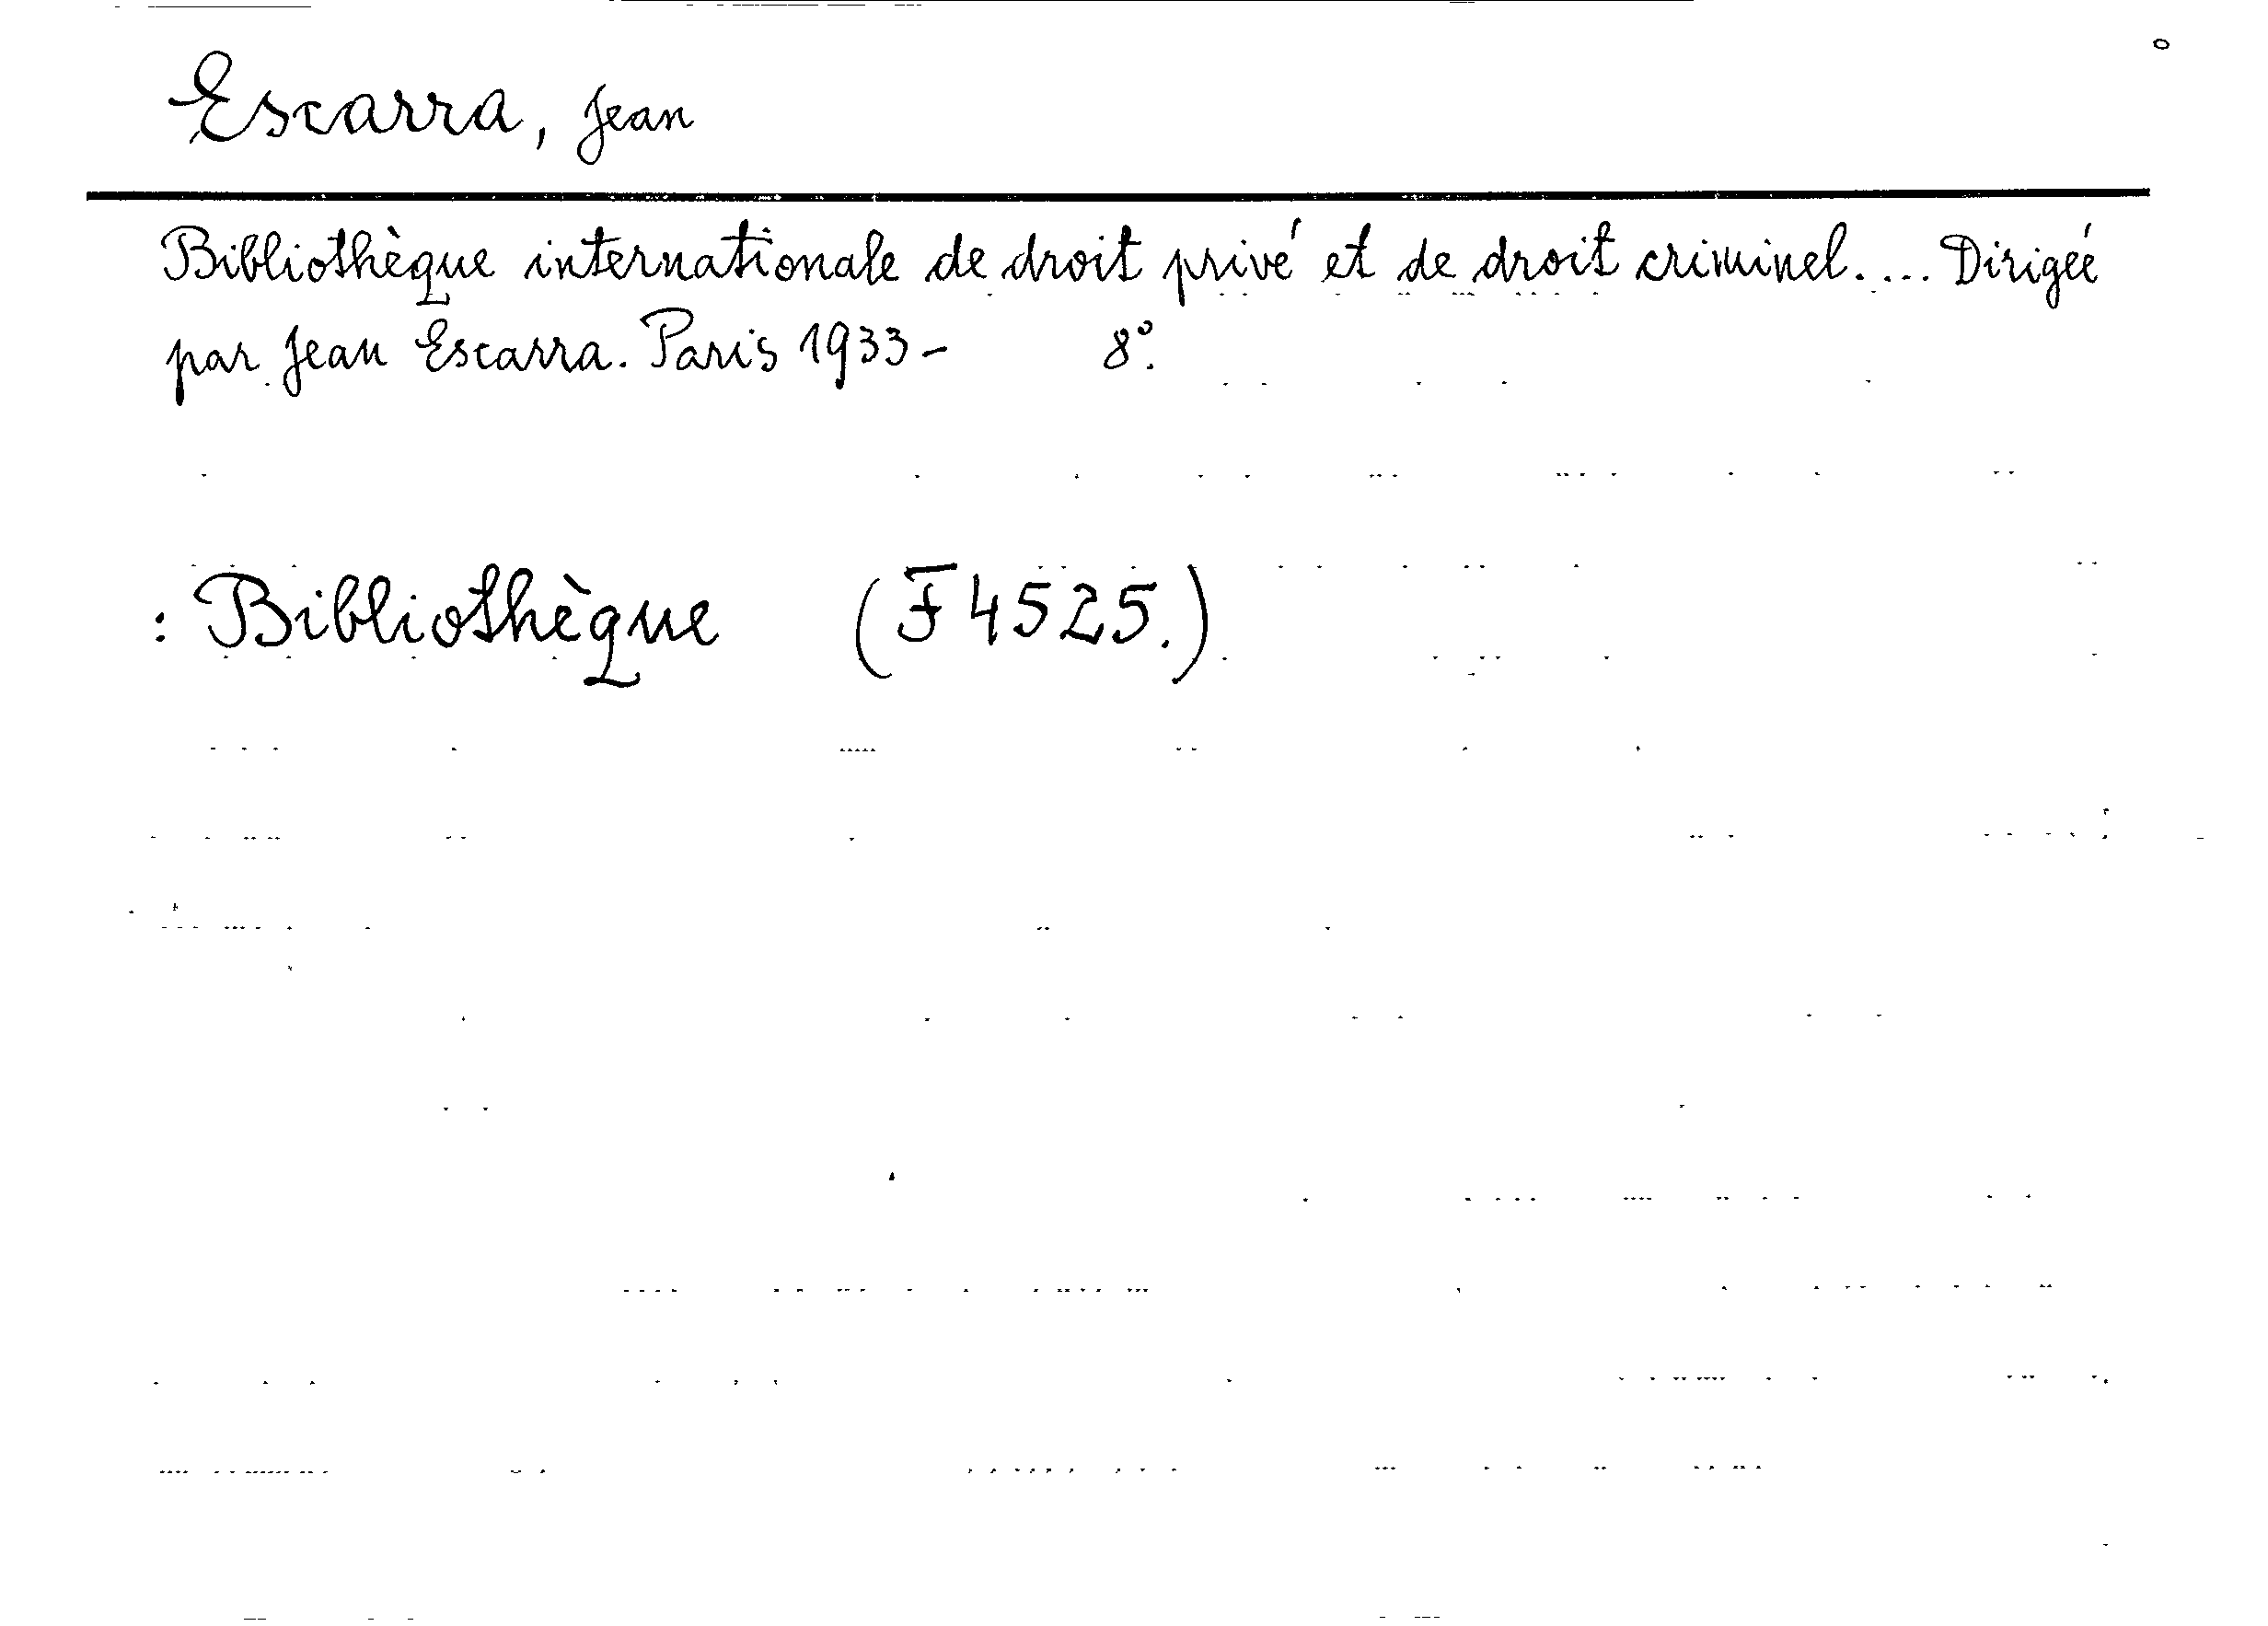 Escarra, Jean
Bibliothèque internationale de droit privé et de droit criminel.... Dirigée
par Jean Escarra. Paris 1933- 8°.
: Bibliothèque (F 4525.)